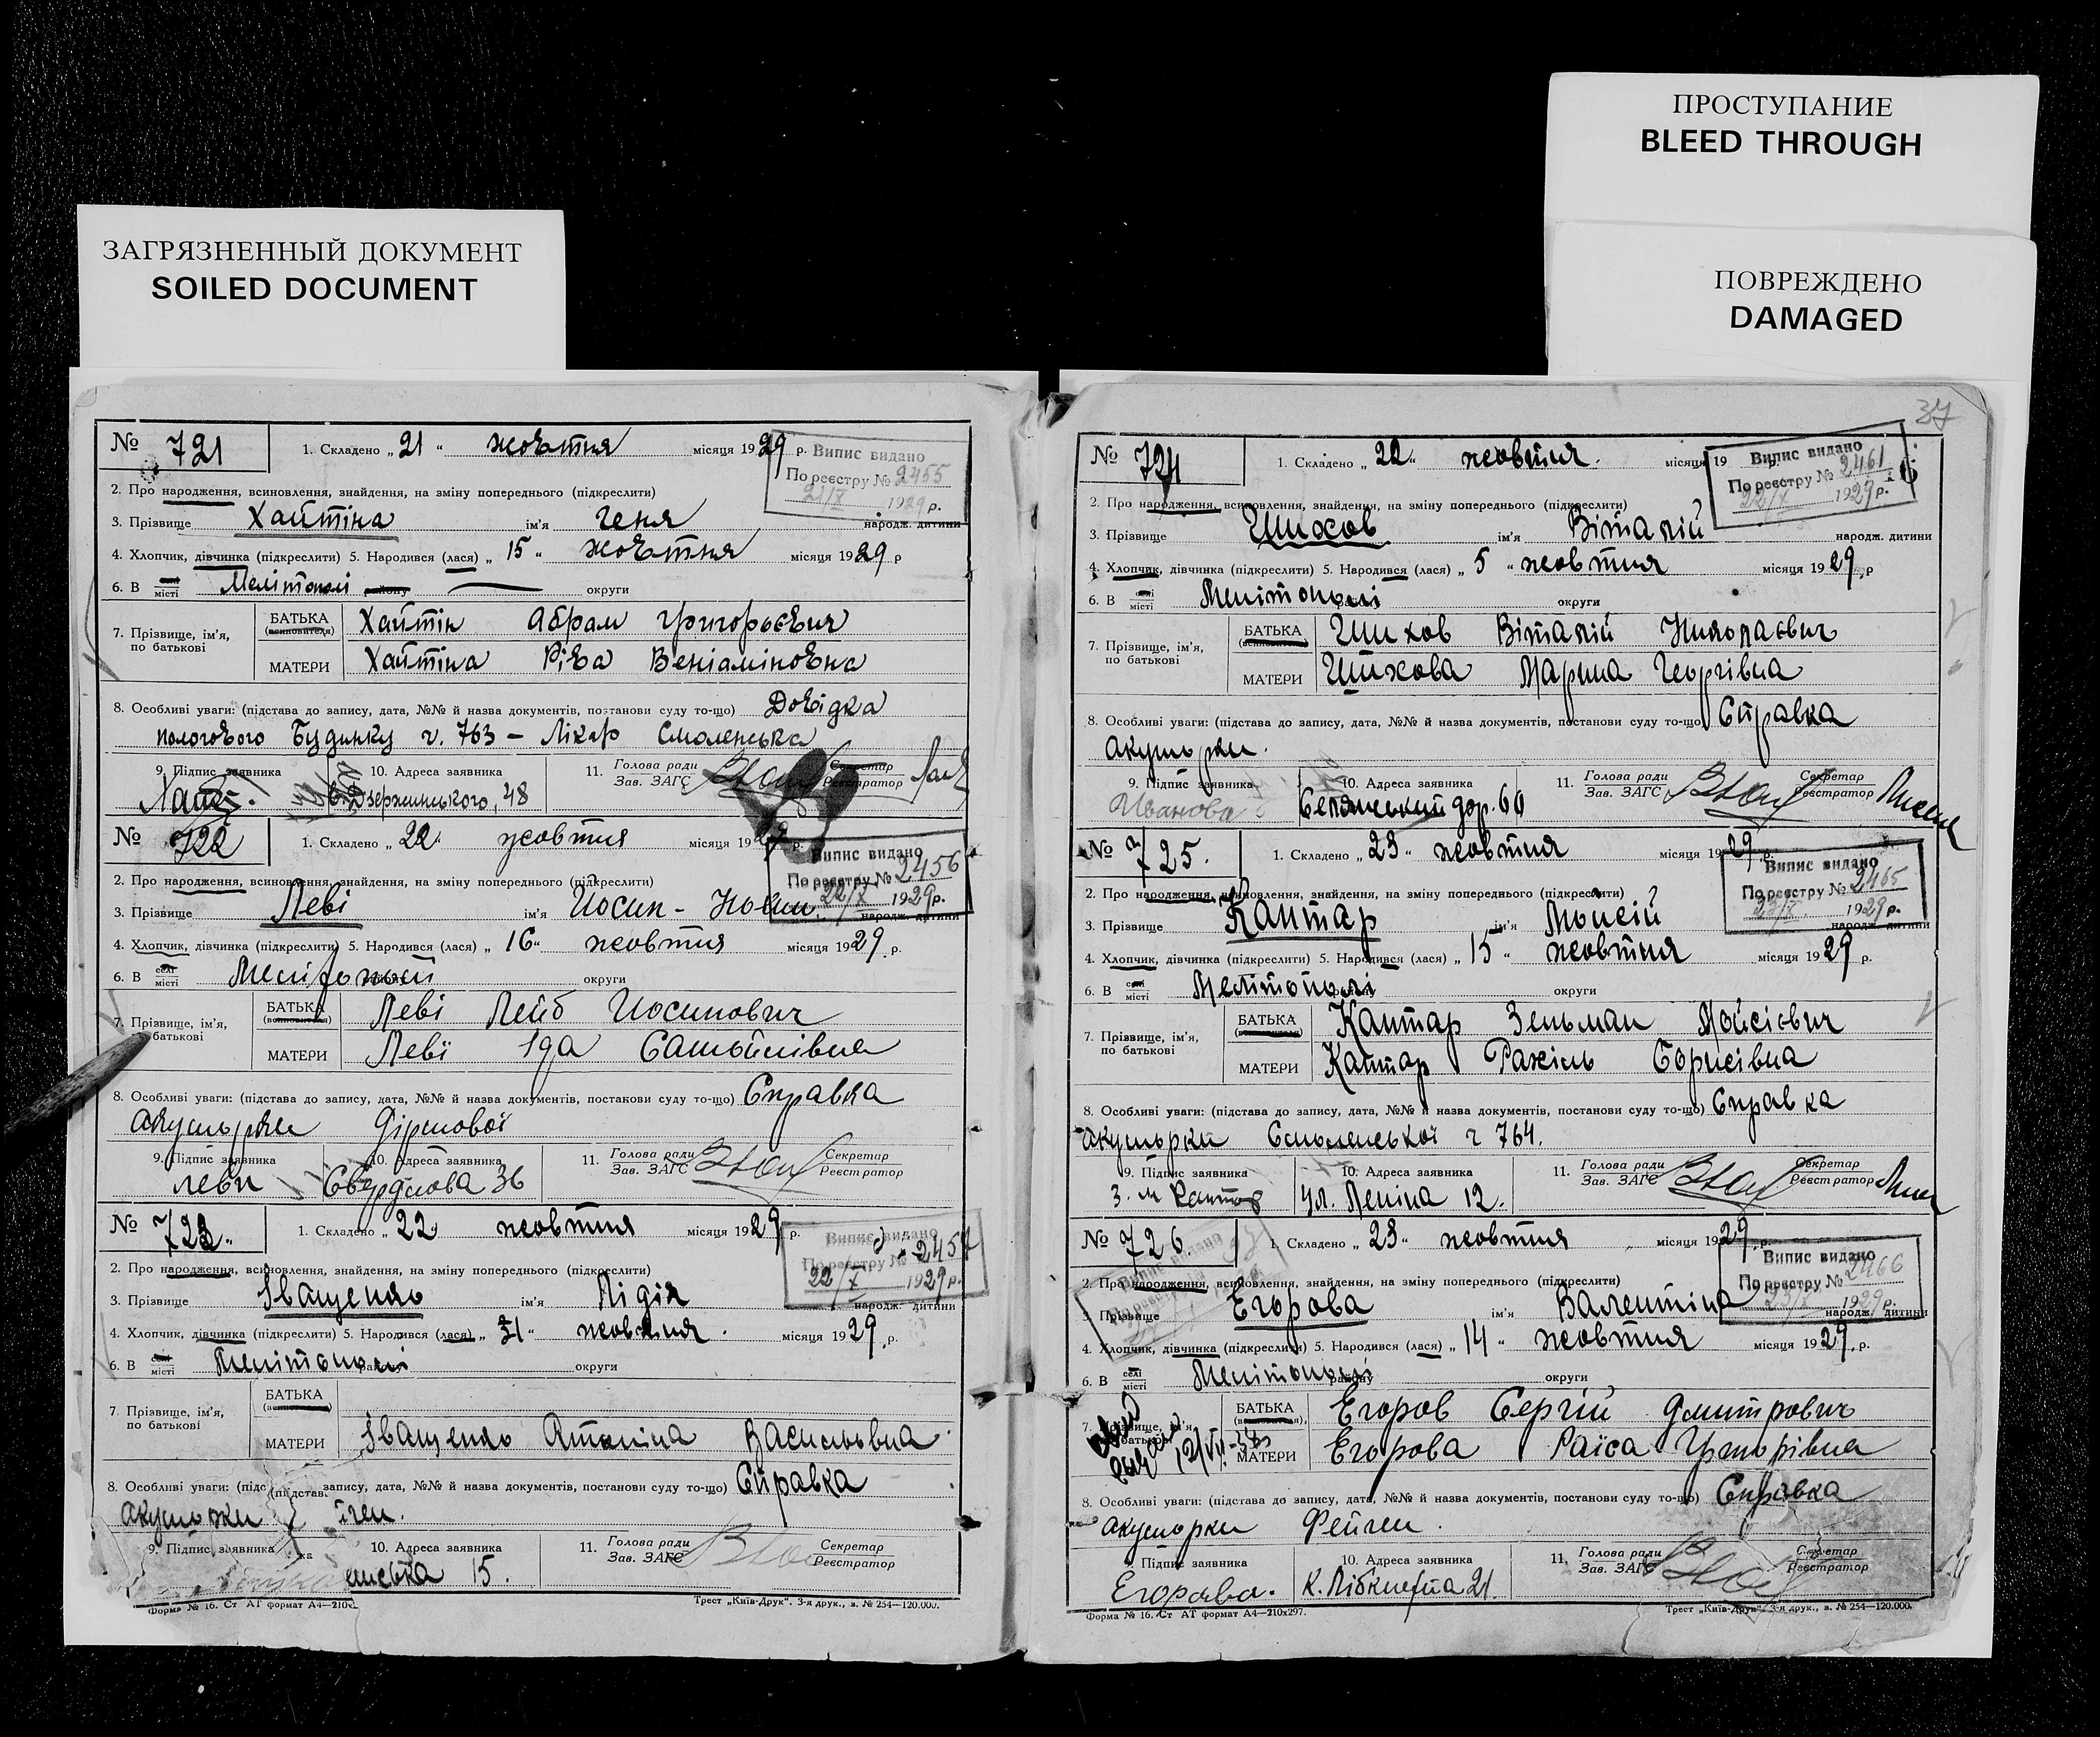 ПРОСТУПАНИЕ
BLEED THROUGH
ЗАГРЯЗНЕННЫЙ ДОКУМЕНТ
SOILED DOCUMENT
ПОВРЕЖДЕНО
DAMAGED
№ 721 1. Складено „ 21 “ жовтня місяця 1929 р.
Випис видано
По реєстру № 2455
21/X 1929 р.
2. Про народження, всиновлення, знайдення, на зміну попереднього (підкреслити)
3. Прізвище Хайтіна ім'я Геня народж. дитини
4. Хлопчик, дівчинка (підкреслити) 5. Народився (лася) „ 15 “ жовтня місяця 1929 р
6. В селі місті Мелітополі району округи
7. Прізвище, ім'я, по батькові
БАТЬКА (всиновителя) Хайтін Абрам Григорьєвич
МАТЕРИ Хайтіна Ріва Веніаміновна
8. Особливі уваги: (підстава до запису, дата, №№ й назва документів, постанови суду то-що) Довідка
пологового Будинку ч. 763 – Лікар Смоленська
9. Підпис заявника 10. Адреса заявника Дзержинського, 48 11. Голова ради Зав. ЗАГС Секретар Реєстратор
№ 722 1. Складено „ 22 “ жовтня місяця 1929 р.
Випис видано
По реєстру № 2456
22/X 1929 р.
2. Про народження, всиновлення, знайдення, на зміну попереднього (підкреслити)
3. Прізвище Леві ім'я Йосип - народж. дитини
4. Хлопчик, дівчинка (підкреслити) 5. Народився (лася) „ 16 “ жовтня місяця 1929 р.
6. В селі місті Мелітополі округи
7. Прізвище, ім'я, по батькові
БАТЬКА (всиновителя) Леві Лейб Иосипович
МАТЕРИ Леві Іда Самойлівна
8. Особливі уваги: (підстава до запису, дата, №№ й назва документів, постанови суду то-що) Справка
акушорки
9. Підпис заявника Леви 10. Адреса заявника Свердлова 36 11. Голова ради Зав. ЗАГС Секретар Реєстратор
№ 723. 1. Складено „ 22 “ жовтня місяця 1929 р.
Випис видано
По реєстру № 2457
22/X 1929 р.
2. Про народження, всиновлення, знайдення, на зміну попереднього (підкреслити)
3. Прізвище Іващенко ім'я Лідія народж. дитини
4. Хлопчик, дівчинка (підкреслити) 5. Народився (лася) „ “ жовтня місяця 1929 р.
6. В селі місті Мелітополі району округи
7. Прізвище, ім'я, по батькові
БАТЬКА (всиновителя)
МАТЕРИ Іващенко Антоніна Васильовна
8. Особливі уваги: (підстава запису, дата, №№ й назва документів, постанови суду то-що) Справка
акушорки
9. Підпис заявника 10. Адреса заявника 15. 11. Голова ради Зав. ЗАГС Секретар Реєстратор
Форма № 16. Ст АТ формат А4—210х Трест „Київ-Друк“. 3-я друк., в. № 254—120.000.
37
№ 724 1. Складено „ 22 “ жовтня. місяця 19
Випис видано
По реєстру № 2461
22/X 1929 р.
2. Про народження, всиновлення, знайдення, на зміну попереднього (підкреслити)
3. Прізвище Шихов ім'я Віталій народж. дитини
4. Хлопчик, дівчинка (підкреслити) 5. Народився (лася) „ 5 “ жовтня місяця 1929 р
6. В селі місті Мелітополі району округи
7. Прізвище, ім'я, по батькові
БАТЬКА (всиновителя) Шихов Віталій Николаєвич
МАТЕРИ Шихова Марина Георгівна
8. Особливі уваги: (підстава до запису, дата, №№ й назва документів, постанови суду то-що) Справка
акушорки.
9. Підпис заявника Иванова 10. Адреса заявника 60 11. Голова ради Зав. ЗАГС Секретар Реєстратор
№ 725. 1. Складено „ 23 “ жовтня місяця 1929 р.
Випис видано
По реєстру № 2465
23/X 1929 р.
2. Про народження, всиновлення, знайдення, на зміну попереднього (підкреслити)
3. Прізвище Кантар ім'я Мойсій народж. дитини
4. Хлопчик, дівчинка (підкреслити) 5. Народився (лася) „ 15 “ жовтня місяця 1929 р.
6. В селі місті Мелітополі району округи
7. Прізвище, ім'я, по батькові
БАТЬКА (всиновителя) Кантар Зельман Мойсієвич
МАТЕРИ Кантар Рахіль Борисівна
8. Особливі уваги: (підстава до запису, дата, №№ й назва документів, постанови суду то-що) Справка
акушорки Смоленської ч 764.
9. Підпис заявника З. М Кантар 10. Адреса заявника Ул. Леніна 12. 11. Голова ради Зав. ЗАГС Секретар Реєстратор
№ 726. 1. Складено „ 23 “ жовтня місяця 1929 р.
Випис видано
По реєстру № 2466
23/X 1929 р.
2. Про народження, всиновлення, знайдення, на зміну попереднього (підкреслити)
3. Прізвище Егорова ім'я Валентіна народж. дитини
4. Хлопчик, дівчинка (підкреслити) 5. Народився (лася) „ 14 “ жовтня місяця 1929 р.
6. В селі місті Мелітополі району округи
7. Прізвище, ім'я, по батькові
БАТЬКА (всиновителя) Егоров Сергій Дмитрович
МАТЕРИ Егорова Раїса Григорівна
8. Особливі уваги: (підстава до запису, дата, №№ й назва документів, постанови суду то-що) Справка
акушорки Фейген.
9. Підпис заявника Егорова. 10. Адреса заявника К. Лібкнехта 21. 11. Голова ради Зав. ЗАГС Секретар Реєстратор
Форма № 16. Ст АТ формат А4—210х297. Трест „Київ-Друк“. 3-я друк., в. № 254—120.000.